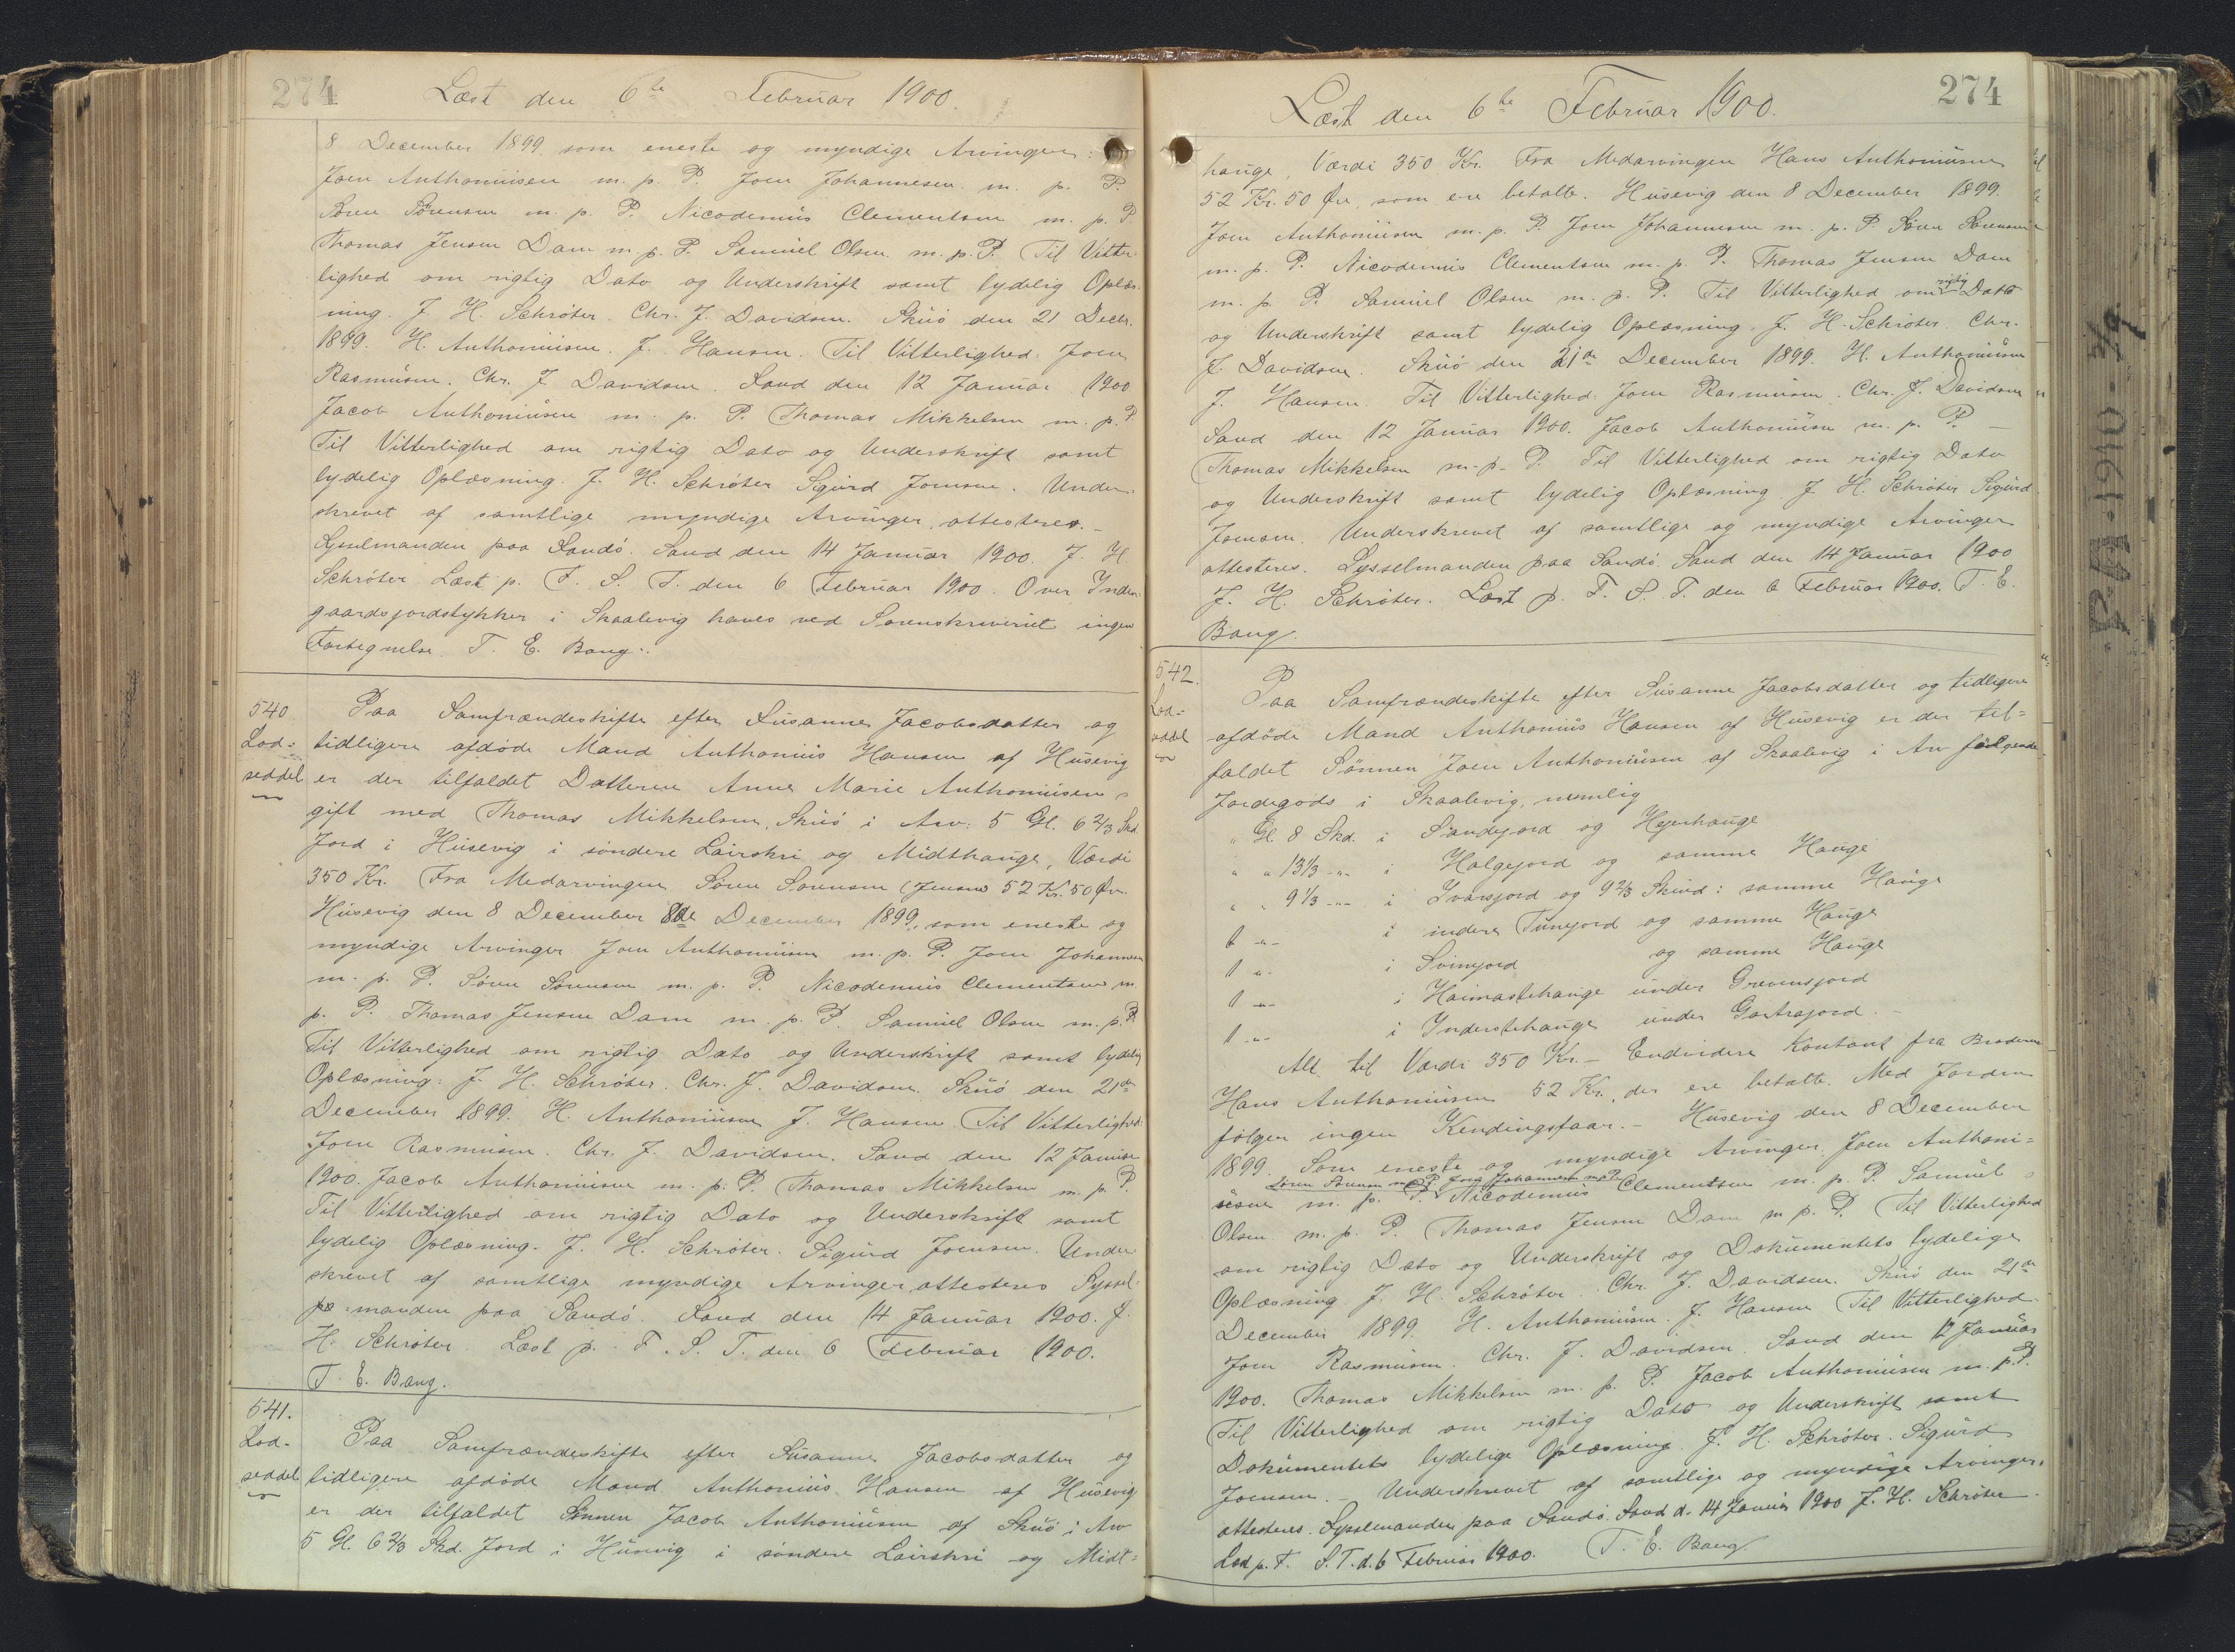 274
Læst den 6te Februar 1900.
8 December 1899 som eneste og myndige Arvinger:
Joen Anthoniüsen m. p. P. Joen Johannesen m. p. P.
Sören Sörensen m. p. P. Nicodemüs Clementsen m. p. P.
Thomas Jensen Dam m. p. P. Samüel Olsen m. p. P. Til Vitter-
lighed om rigtig Dato og Underskrift samt lydelig Oplæs-
ning. J. H. Schröter. Chr. J. Davidsen. Skuö den 21 Decbr.
1899. H. Anthoniüsen. J. Hansen. Til Vitterlighed: Joen
Rasmüsen. Chr. J. Davidsen. Sand den 12 Januar 1900
Jacob Anthoniüsen m. p. P. Thomas Mikkelsen m. p. P.
Til Vitterlighed om rigtig Dato og Underskrift samt
lydelig Oplæsning. J. H. Schröter Sigürd Joensen. Under-
skrevet af samtlige myndige Arvinger, attesteres.
Sysselmanden paa Sandö. Sand den 14 Januar 1900. J. H.
Schröter Læst p. F. S. T. den 6 Februar 1900. Over Inden-
gaardsjordstykker i Skaalevig haves ved Sorenskriveriet ingen
Fortegnelse. T. E. Bang.
540
Lod-
seddel
Paa Samfrændeskifte efter Susanne Jacobsdatter og
tidligere afdöde Mand Anthoniüs Hansen af Hüsevig
er der tilfaldet Datteren Anne Marie Anthoniüsen,
gift med Thomas Mikkelsen, Skuö i Arv: 5 Gl. 6 2/3 Skd
Jord i Hüsevig i söndere Lairskri og Midthauge, Værdi
350 Kr. Fra Medarvingen Sören Sörensen (Jensen) 52 Kr. 50 Øre.
Hüsevig den 8 December 8de December 1899, som eneste og
myndige Arvinger Joen Anthoniüsen m. p. P. Joen Johannesen
m. p. P. Sören Sörensen m. p. P. Nicodemüs Clementsen m.
p. P. Thomas Jensen Dam m. p. P. Samüel Olsen m. p. P.
Til Vitterlighed om rigtig Dato og Underskrift samt lydelig
Oplæsning: J. H. Schröter. Chr. J. Davidsen. Skuö den 21de
December 1899. H. Anthoniüsen J. Hansen Til Vitterlighed:
Joen Rasmüsen. Chr. J. Davidsen. Sand den 12 Januar
1900. Jacob Anthoniüsen m. p. P. Thomas Mikkelsen m. p. P.
Til Vitterlighed om rigtig Dato og Underskrift samt
lydelig Oplæsning. J. H. Schröter. Sigürd Joensen. Under
skrevet af samtlige myndige Arvinger attesteres Syssel-
manden paa Sandö. Sand den 14 Januar 1900. J.
H. Schröter. Læst p. F. S. T. den 6 Februar 1900.
T. E. Bang.
541.
Lod-
seddel
Paa Samfrændeskifte efter Susanne Jacobsdatter og
tidligere afdöde Mand Anthoniüs Hansen af Hüsevig
er der tilfaldet Sönnen Jacob Anthoniüsen af Skuö i Arv
5 Gl. 6 2/3 Skd. Jord i Hüsevig i söndere Lairskri og Midt-
274
Læst den 6te Februar 1900.
hauge, Værdi 350 Kr. Fra Medarvingen Hans Anthoniüsen
52 Kr. 50 Øre, som ere betalte. Hüsevig den 8 December 1899.
Joen Anthoniüsen m. p. P. Joen Johannesen m. p. P. Sören Sörensen
m. p. P. Nicodemüs Clementsen m. p. P. Thomas Jensen Dam
m. p. P. Samüel Olsen m. p. P. Til Vitterlighed om rigtig Dato
og Underskrift samt lydelig Oplæsning. J. H. Schröter Chr.
J. Davidsen. Skuö den 21de December 1899. H. Anthoniüsen
J. Hansen. Til Vitterlighed: Joen Rasmüsen. Chr. J. Davidsen
Sand den 12 Januar 1900. Jacob Anthoniüsen m. p. P. –
Thomas Mikkelsen m. p. P. Til Vitterlighed om rigtig Dato
og Underskrift samt lydelig Oplæsning. J. H. Schröter Sigürd
Joensen. Underskrevet af samtlige og myndige Arvinger
attesteres. Sysselmanden paa Sandö. Sand den 14 Januar 1900
J. H. Schröter. Læst p. F. S. T. den 6 Februar 1900. T. E.
Bang.
542.
Lod-
seddel
Paa Samfrændeskifte efter Susanne Jacobsdatter og tidligere
afdöde Mand Anthoniüs Hansen af Hüsevig er der til-
faldet Sönnen Joen Anthoniüsen af Skaalevig i Arv fölgende
Jordegods i Skaalevig, nemlig
" Gl. 8 Skd. i Sandejord og Hejerhauge
" " 13 1/3 -"- i Halgejord og samme Hauge
" " 9 1/3 -"- i Ivarsjord og 9 2/3 Skind: samme Hauge
1 -"- i indere Tunejord og samme Hauge
1 -"- i Svinejord og samme Hauge
1 -"- i Haimastehauge under Grevensjord
1 -"- i Inderstehauge under Gartrajord.
Alt til Værdi 350 Kr. – Endvidere Kontant fra Broderen
Hans Anthoniüsen 52 Kr., der ere betalte. Med Jorden
fölger ingen Kendingsfaar. – Hüsevig den 8 December
1899. Som eneste og myndige Arvinger. Joen Anthoni-
Sören Sörensen m. p. P. Joen Johannesen m. p. P.
üsen m. p. P. Nicodemüs Clementsen m. p. P. Samüel
Olsen m. p. P. Thomas Jensen Dam m. p. P. Til Vitterlighed
om rigtig Dato og Underskrift og Dokümentets lydelige
Oplæsning J. H. Schröter. Chr. J. Davidsen. Skuö den 21de
December 1899. H. Anthoniüsen. J. Hansen Til Vitterlighed.
Joen Rasmüsen. Chr. J. Davidsen. Sand den 12 Januar
1900. Thomas Mikkelsen m. p. P. Jacob Anthoniüsen m. p. P.
Til Vitterlighed om rigtig Dato og Underskrift samt
Dokümentets lydelige Oplæsning. J. H. Schröter. Sigürd
Joensen. – Underskrevet af samtlige og myndige Arvinger,
attesteres. Sysselmanden paa Sandö. Sand d. 14 Januar 1900 J. H. Schröter.
Læst p. F. S. T. d. 6 Februar 1900. T. E. Bang.